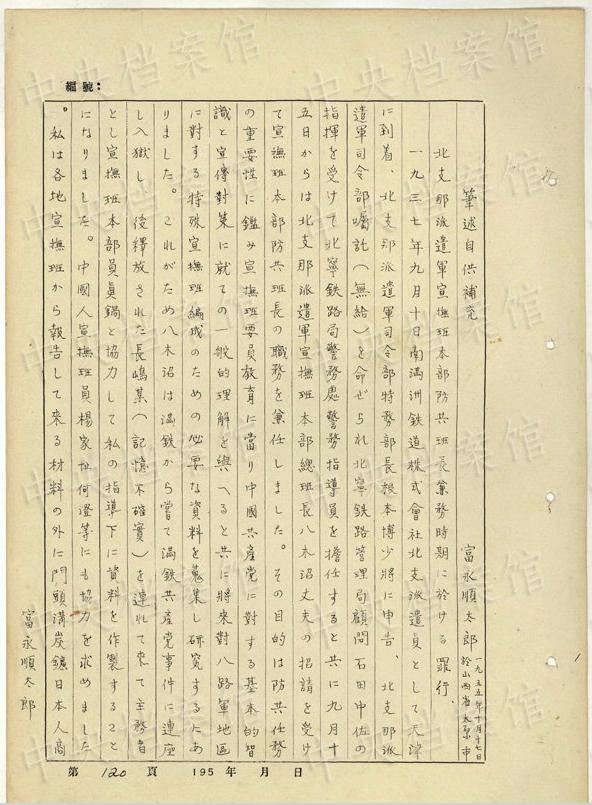 編號：
筆述自供補充
富永順太郎
一九五五年十月十七日
於山西省太原市
北支那派遣軍宣撫班本部防共班長兼務時期に於ける罪行、
一九三七年九月十日南満洲鉄道株式會社北支派遣員として天津
に到着、北支那派遣軍司令部特務部長根本博少將に申告、北支那派
遣軍司令部囑託（無給）を命ぜられ北寧鉄路管理局顧問石田中佐の
指揮を受けて北寧鉄路局警務處警務指導員を擔任すると共に九月十
五日からは北支那派遣軍宣撫班本部總班長八木沼丈夫の招請を受け
て宣撫班本部防共班長の職務を兼任しました。その目的は防共任務
の重要性に鑑み宣撫班要員教育に當り中國共産党に対する基本的智
識と宣傳対策に就ての一般的理解を與へると共に將来對八路軍地區
に對する特殊宣撫班編成のための必要な資料を蒐集し研究するにあ
りました。これがため八木沼は満鉄から嘗て満鉄共産党事件に連座
し入獄し、後釋放された長嶋某（記憶不確實）を連れて来て主務者
とし宣撫班本部員眞鍋と協力して私の指導下に資料を作製すること
になりました。中國人宣撫班員楊家 何澄等にも協力を求めました
。私は各地宣撫班から報告して来る材料の外に門頭溝炭鑛日本人商
富永順太郎
第 120 頁 195 年 月 日
中央档案馆